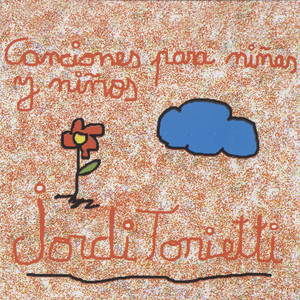 Canciones para niñas
y niños
Jordi Tonietti